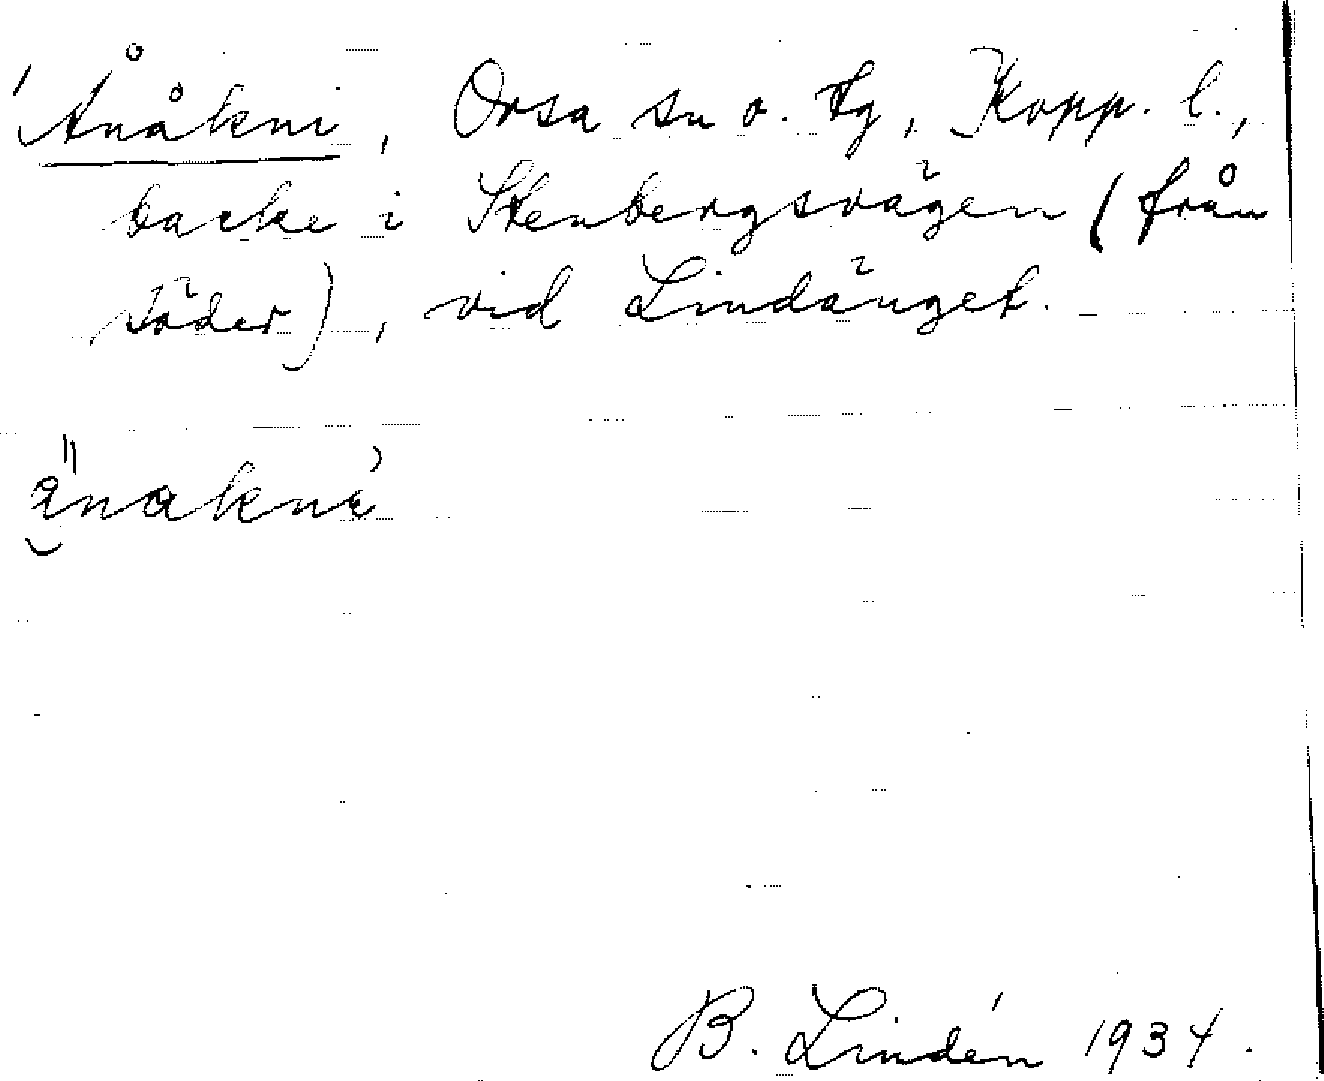 'Ånåkni, Orsa sn o. tg, Kopp. l.,
backe i Stenbergsvägen (från
söder), vid Lindänget.
B. Lindén 1934.